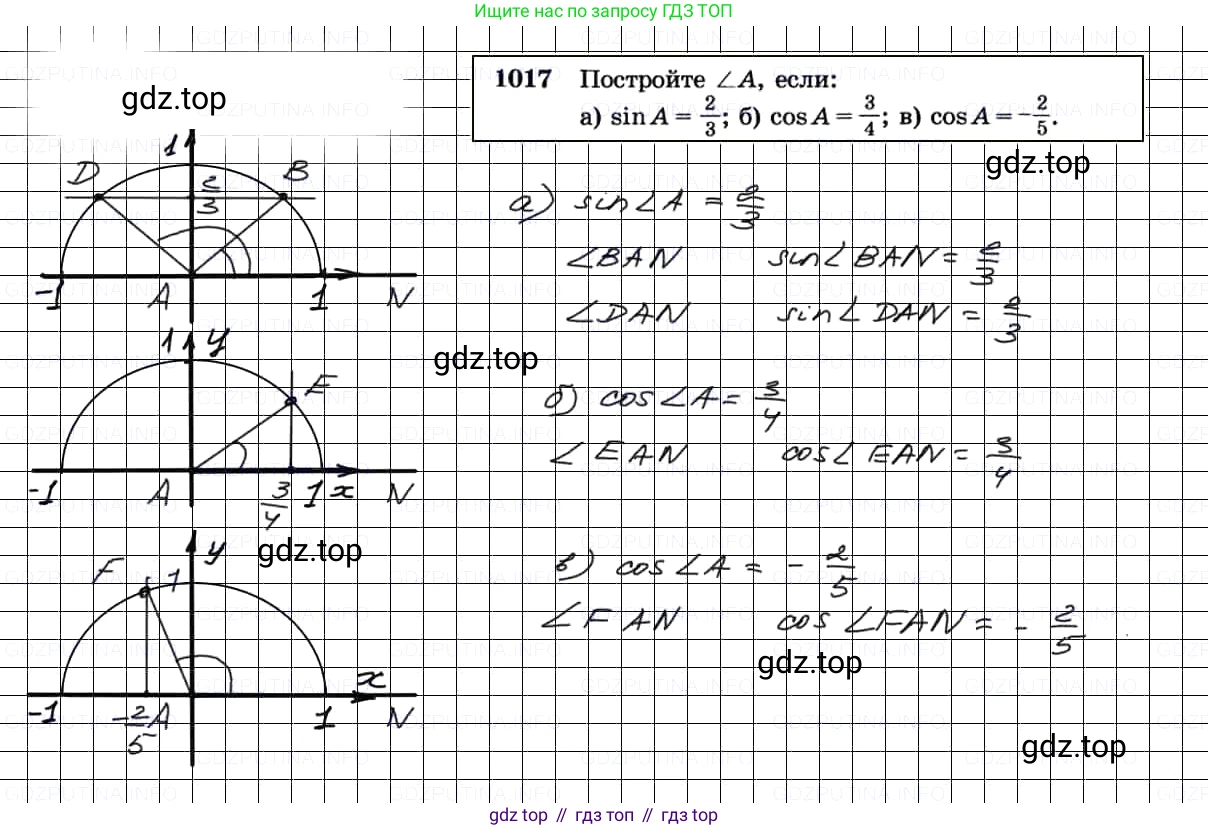 Ищите нас по запросу ГДЗ ТОП
1017 Постройте ∠A, если:
а) sin A = 2/3; б) cos A = 3/4; в) cos A = -2/5.
gdz.top
gdz.top
1
D
B
2/3
-1
A
1
N
а) sin∠A = 2/3
∠BAN sin∠BAN = 2/3
∠DAN sin∠DAN = 2/3
gdz.top
1 y
E
-1
A
3/4
1 x
N
б) cos∠A = 3/4
∠EAN cos∠EAN = 3/4
gdz.top
y
F
1
x
-1
-2/5
A
1
N
в) cos∠A = -2/5
∠FAN cos∠FAN = -2/5
gdz.top
gdz.top
gdz top // гдз топ // гдз top
GDZPUTINA.INFO